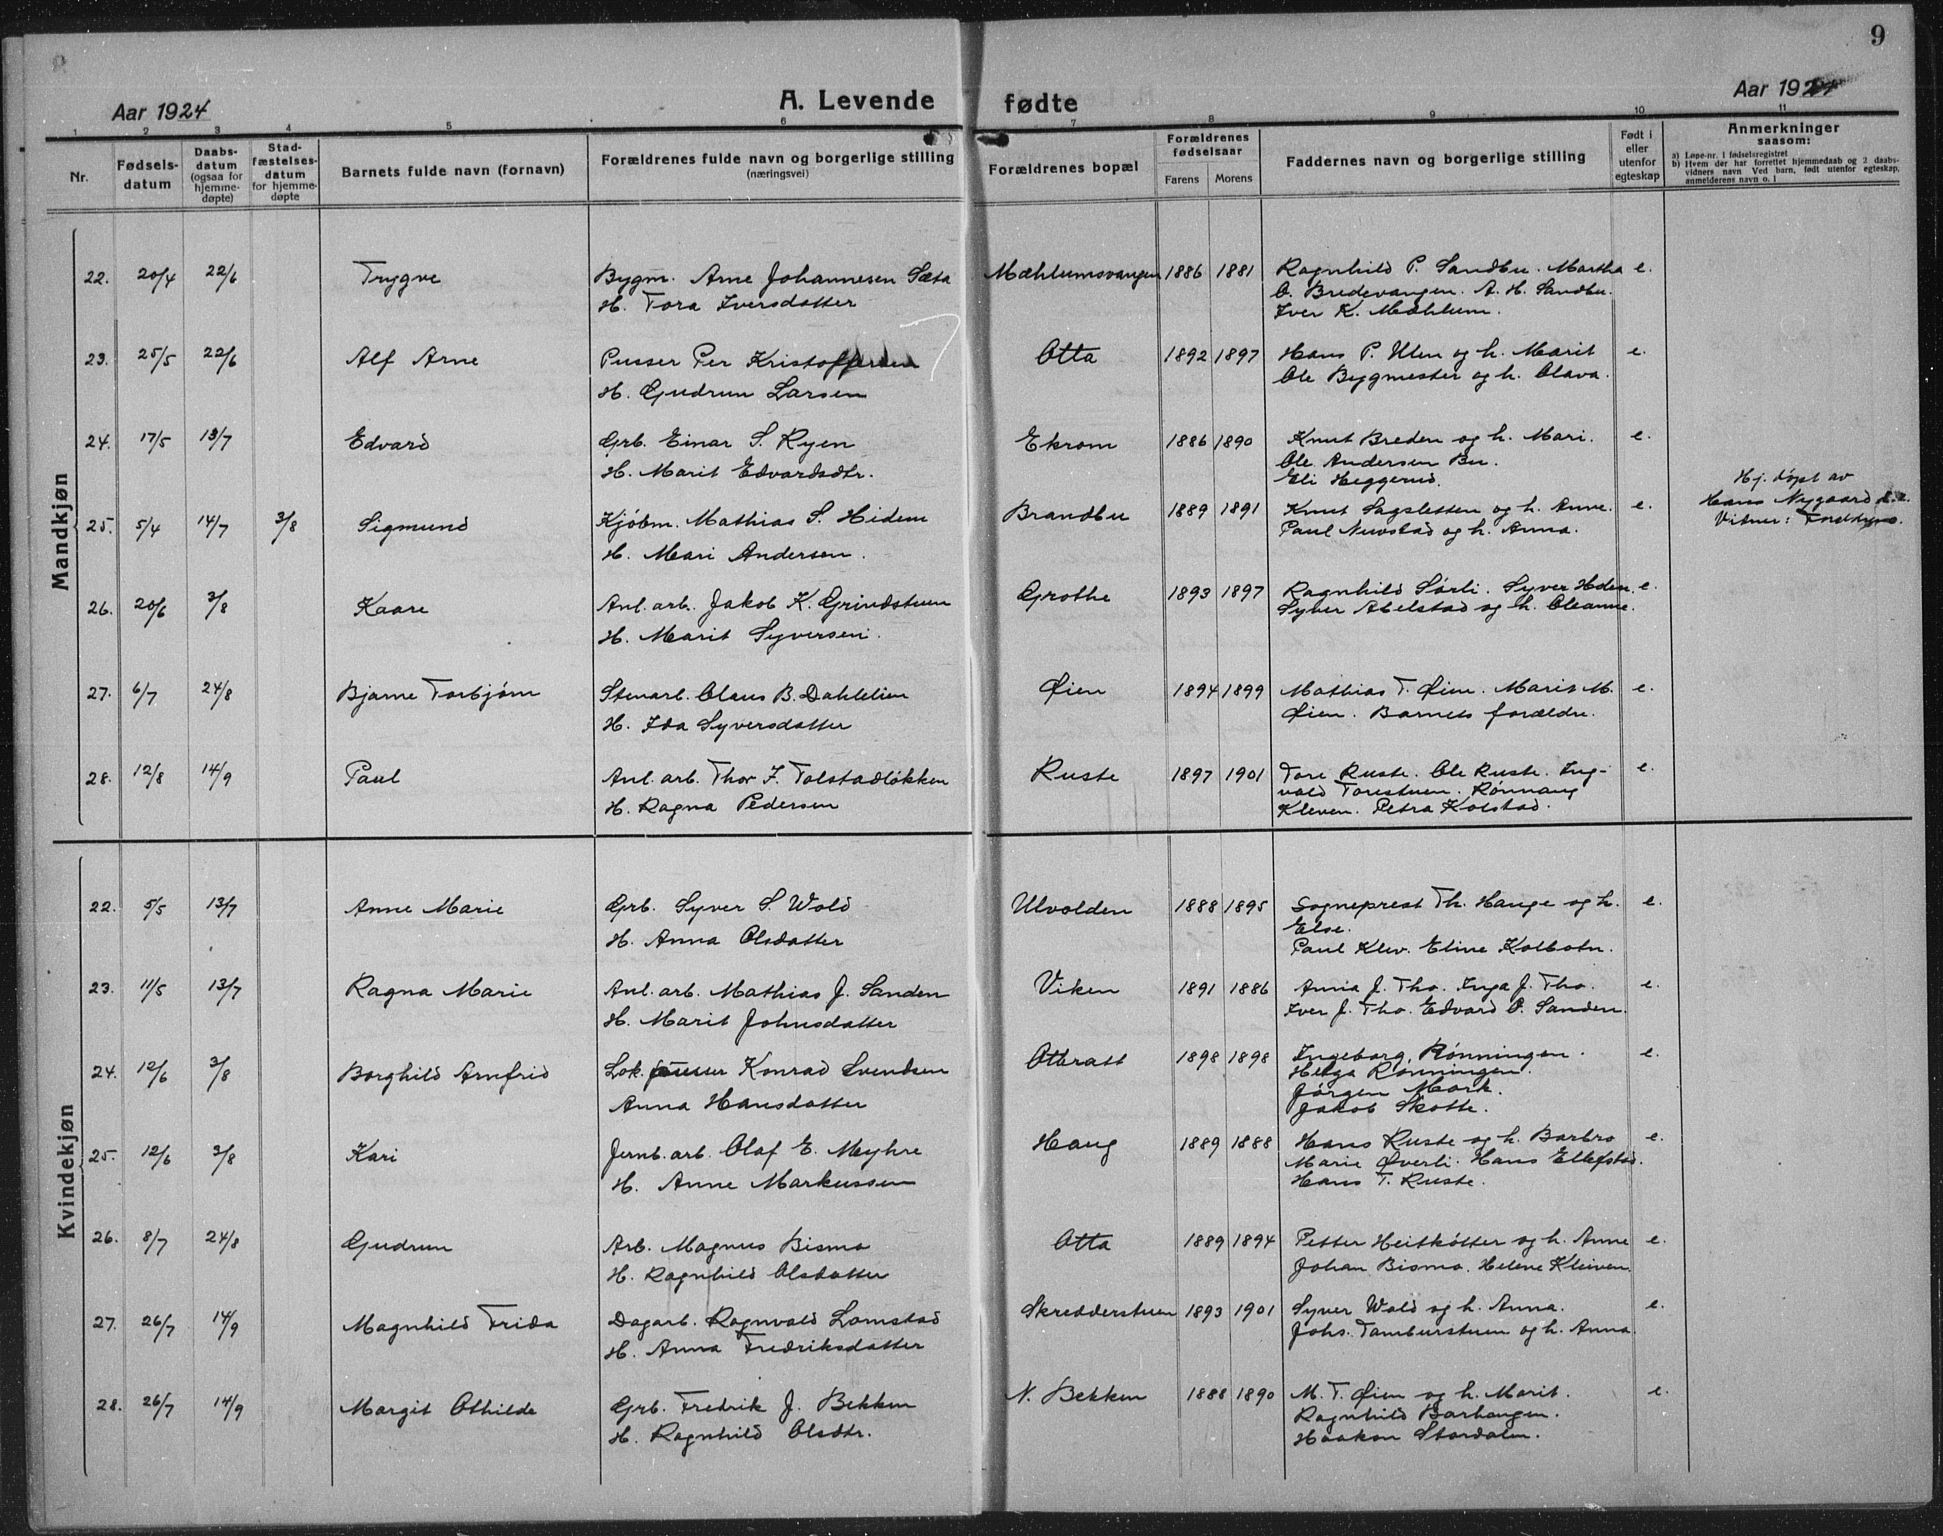 9
Aar 1924 A. Levende fødte Aar 1924
1 2 3 4 5 6 7 8 9 10 11
Nr. Fødselsdatum Daabsdatum (ogsaa for hjemmedøpte) Stadfæstelsesdatum for hjemmedøpte Barnets fulde navn (fornavn) Forældrenes fulde navn og borgerlige stilling (næringsvei) Forældrenes bopæl Forældrenes fødselsaar Farens Morens Faddernes navn og borgerlige stilling Født i eller utenfor egteskap Anmerkninger saasom:
a) Løpe-nr. i fødselsregistret
b) Hvem der har forrettet hjemmedaab og 2 daabsvidners navn Ved barn, født utenfor egteskap, anmelderens navn o. l
Mandkjøn
22. 20/4 22/6 Trygve Bygm. Arne Johannesen Sæta Mæhlumsvangen 1886 1881 Ragnhild P. Sandbu. Martha e.
H. Tora Iversdatter O. Bredevangen. A. H. Sandbu.
Iver K. Mæhlum.
23. 25/5 22/6 Alf Arne Pusser Per Kristoffersen Otta 1892 1897 Hans P. Ulen og h. Marit e.
H. Gudrun Larsen Ole Bygmester og h. Olava.
24. 17/5 13/7 Edvard Grb. Einar S. Ryen Ekrom 1886 1890 Knut Breden og h. Mari. e.
H. Marit Edvardsdtr. Ole Andersen Bu.
Eli Heggerud.
25. 5/4 14/7 3/8 Sigmund Kjøbm. Mathias S. Hidem Brandbu 1889 1891 Knut Sagsletten og h. Anne. e. Hj. døpt av
Hans Nygaard
Vitner:
H. Mari Andersen. Paul Nuvstad og h. Anna.
26. 20/6 3/8 Kaare Anl. arb. Jakob K. Grindstuen Grothe 1893 1897 Ragnhild Sørli. Syver Hølen. e.
H. Marit Syversen. Syver Abelstad og h. Oleanne.
27. 6/7 24/8 Bjarne Torbjørn Stenarb. Olaus B. Dahlelien Øien 1894 1899 Mathias T. Øien. Marit M. e.
H. Ida Syversdatter Øien. Barnets forældre.
28. 12/8 14/9 Paul Anl. arb. Thor J. Tolstadløkken Ruste 1897 1901 Tore Ruste. Ole Ruste. Ing- e.
H. Ragna Pedersen vald Torestuen. Rønnaug
Kleven. Petra Kolstad.
Kvindekjøn
22. 5/5 13/7 Anne Marie Grb. Syver S. Wold Ulvolden 1888 1895 Sogneprest Th. Hauge og h. e.
H. Anna Olsdatter Else.
Paul Klev. Eline Kolbotn.
23. 11/5 13/7 Ragna Marie Anl. arb. Mathias J. Sanden Viken 1891 1886 Anna J. Tho. Inga J. Tho. e.
H. Marit Johnsdatter Iver J. Tho. Edvard O. Sanden.
24. 12/6 3/8 Borghild Arnfrid Lok. pusser Konrad Svendsen Ottbratt 1898 1898 Ingeborg Rønningen. e.
Anna Hansdatter Helga Rønningen.
Jørgen Mork.
Jakob Skotte.
25. 12/6 3/8 Kari Jernb. arb. Olaf E. Myhre Haug 1889 1888 Hans Ruste og h. Barbro e.
H. Anne Markussen Marie Øverli. Hans Ellefstad.
Hans T. Ruste.
26. 8/7 24/8 Gudrun Arb. Magnus Bismo Otta 1889 1894 Petter Heitkøtter og h. Anne e.
H. Ragnhild Olsdatter Johan Bismo. Helene Kleiven.
27. 26/7 14/9 Magnhild Frida Dagarb. Ragnvald Lomstad Skredderstuen 1893 1901 Syver Wold og h. Anna. e.
H. Anna Fredriksdatter Johs. Tamburstuen og h. Anna.
28. 26/7 14/9 Margit Othilde Grb. Fredrik J. Bekken N. Bekken 1888 1890 M. T. Øien og h. Marit. e.
H. Ragnhild Olsdtr. Ragnhild Barhaugen.
Haakon Stordalen.